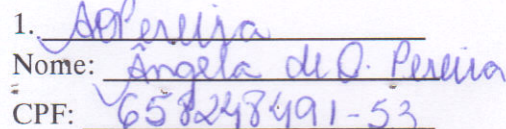 1. AOPereira
Nome: Ângela de O. Pereira
CPF: 658248491-53